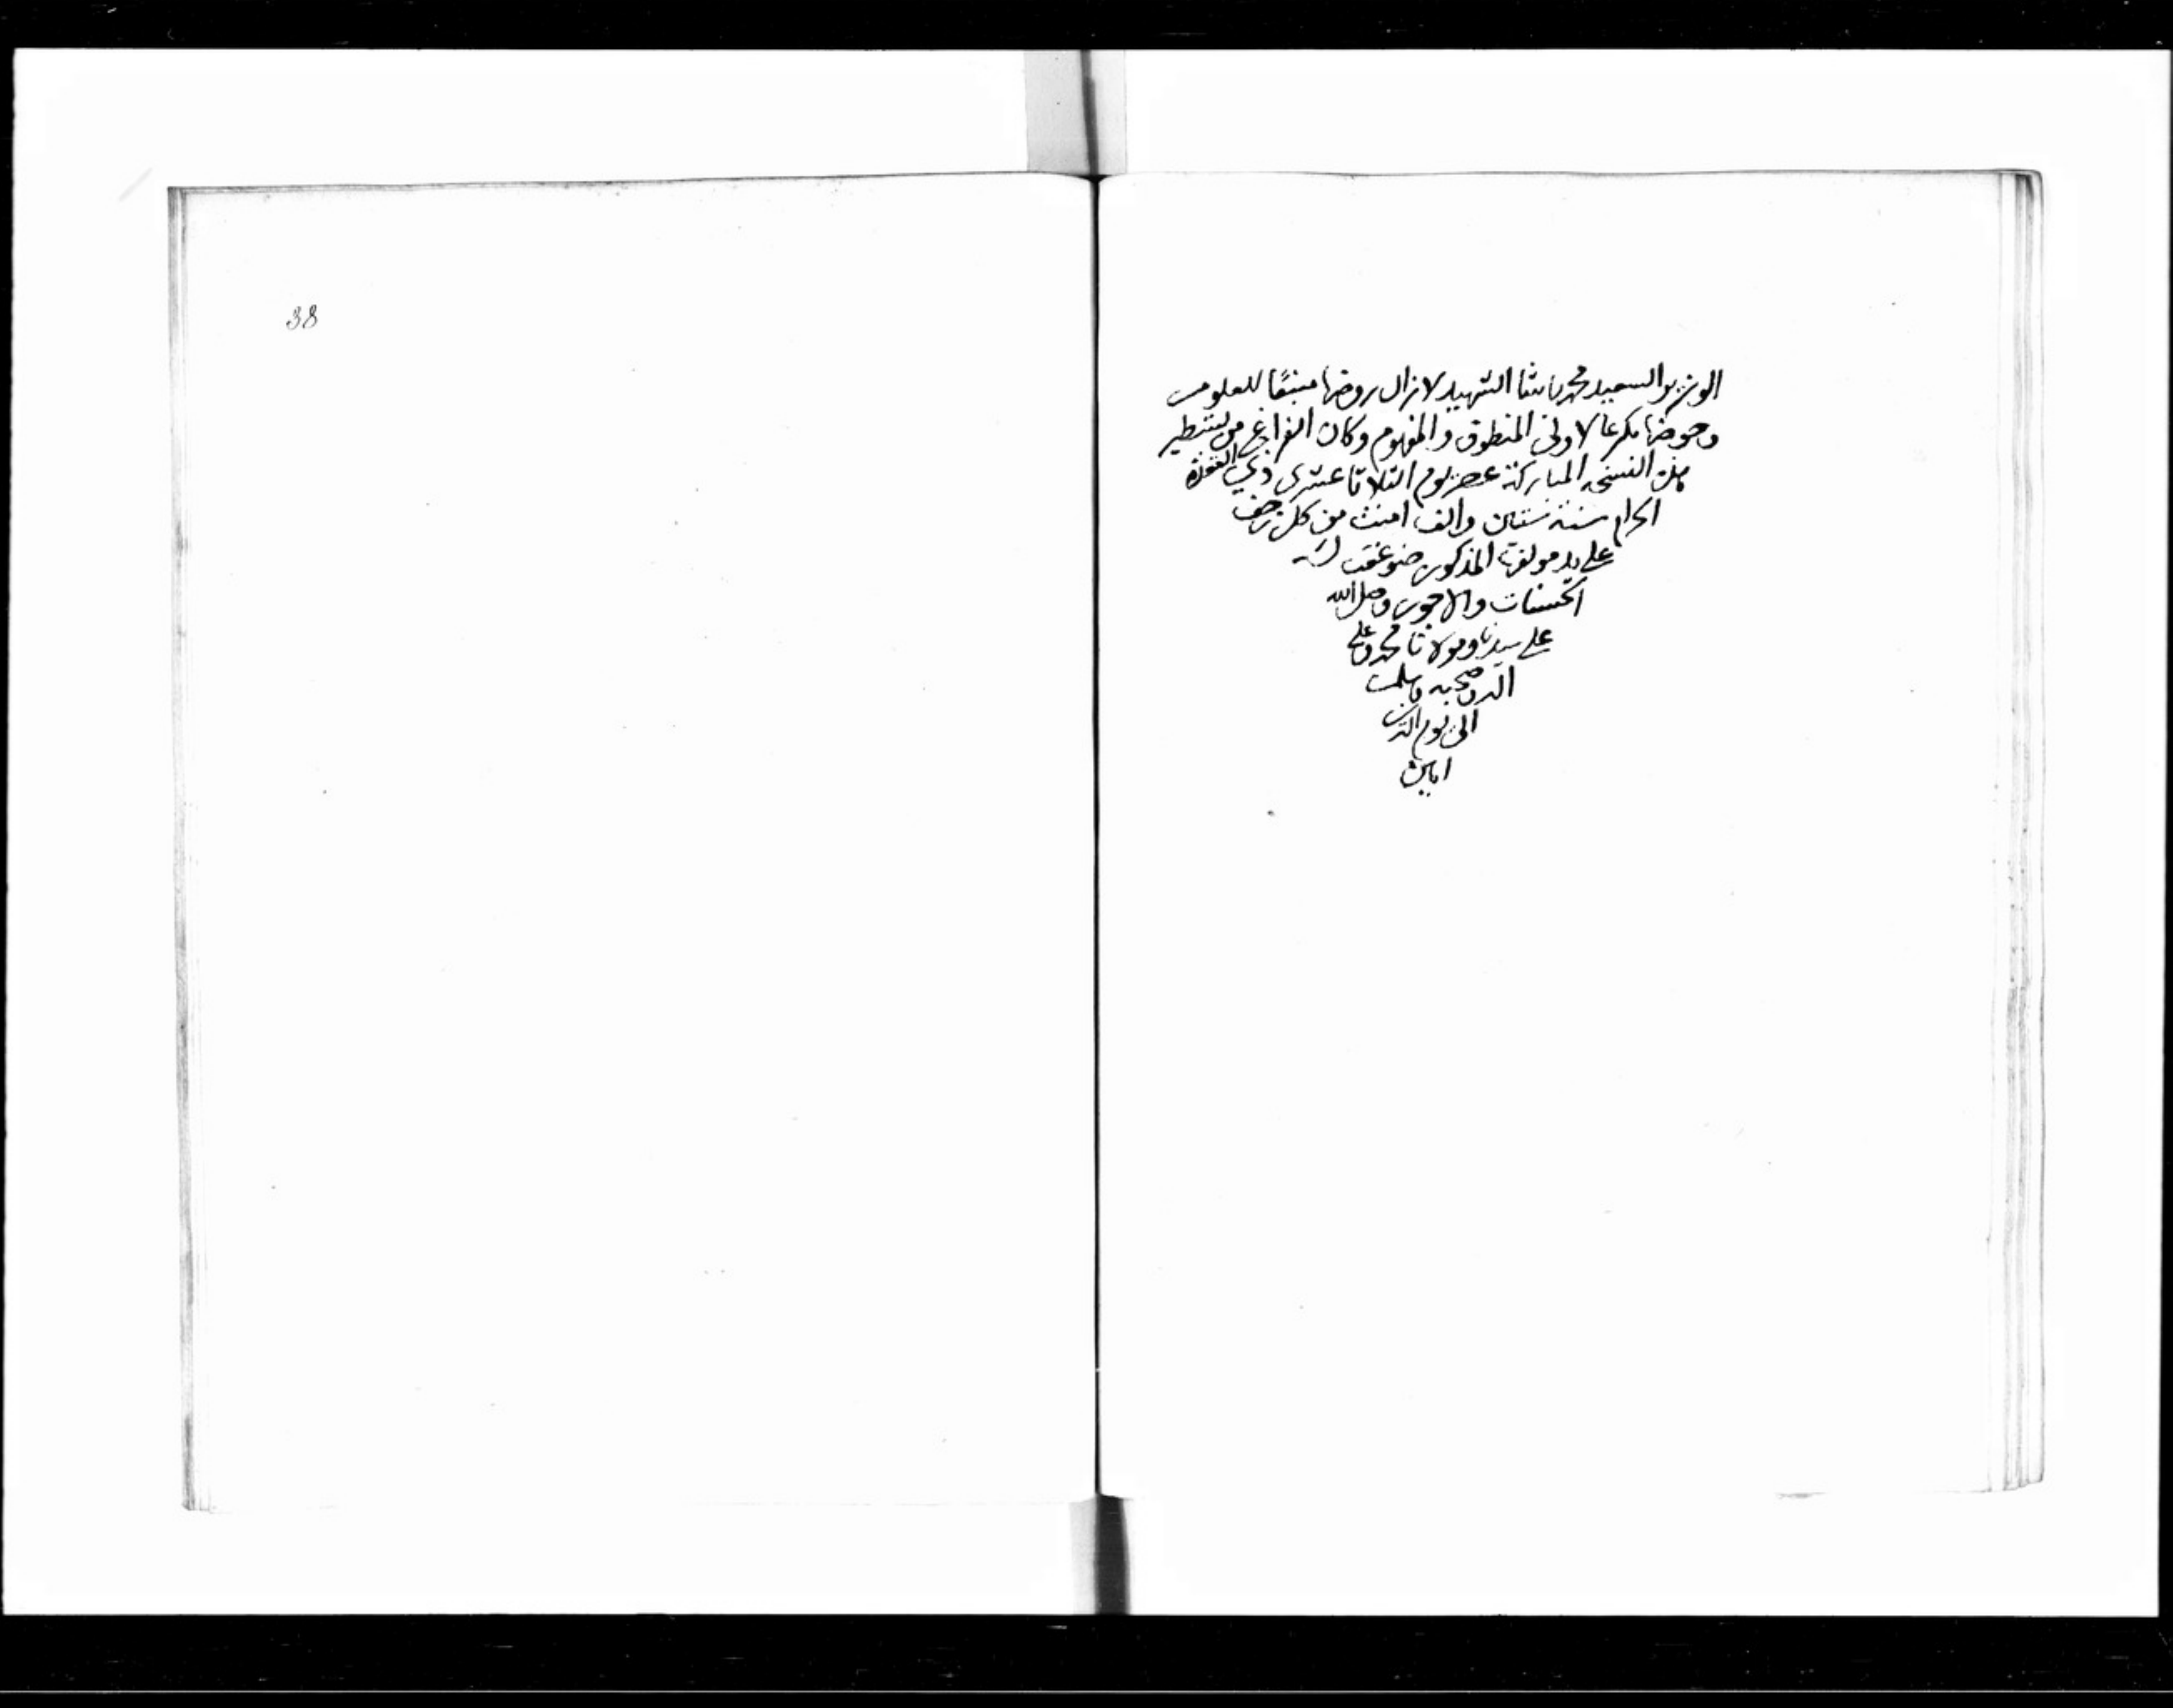 الوزير السعيد محمد باشا الشهيد لازال روضها منبقا للعلوم
وحوضها مكرعا لاولى المنطوق والمفهوم وكان الفراغ من تسطير
هذه النسخه المباركة عصر يوم الثلاثا عشرى ذي القعدة
الحرام سنة ستين والف امنت من كل زحف
على يد مولفها المذكور ضوعفت له
الحسنات والاجور وصلى الله
على سيدنا ومولانا محمد وعلى
اله وصحبه وسلم
الى يوم الدين
امين
38